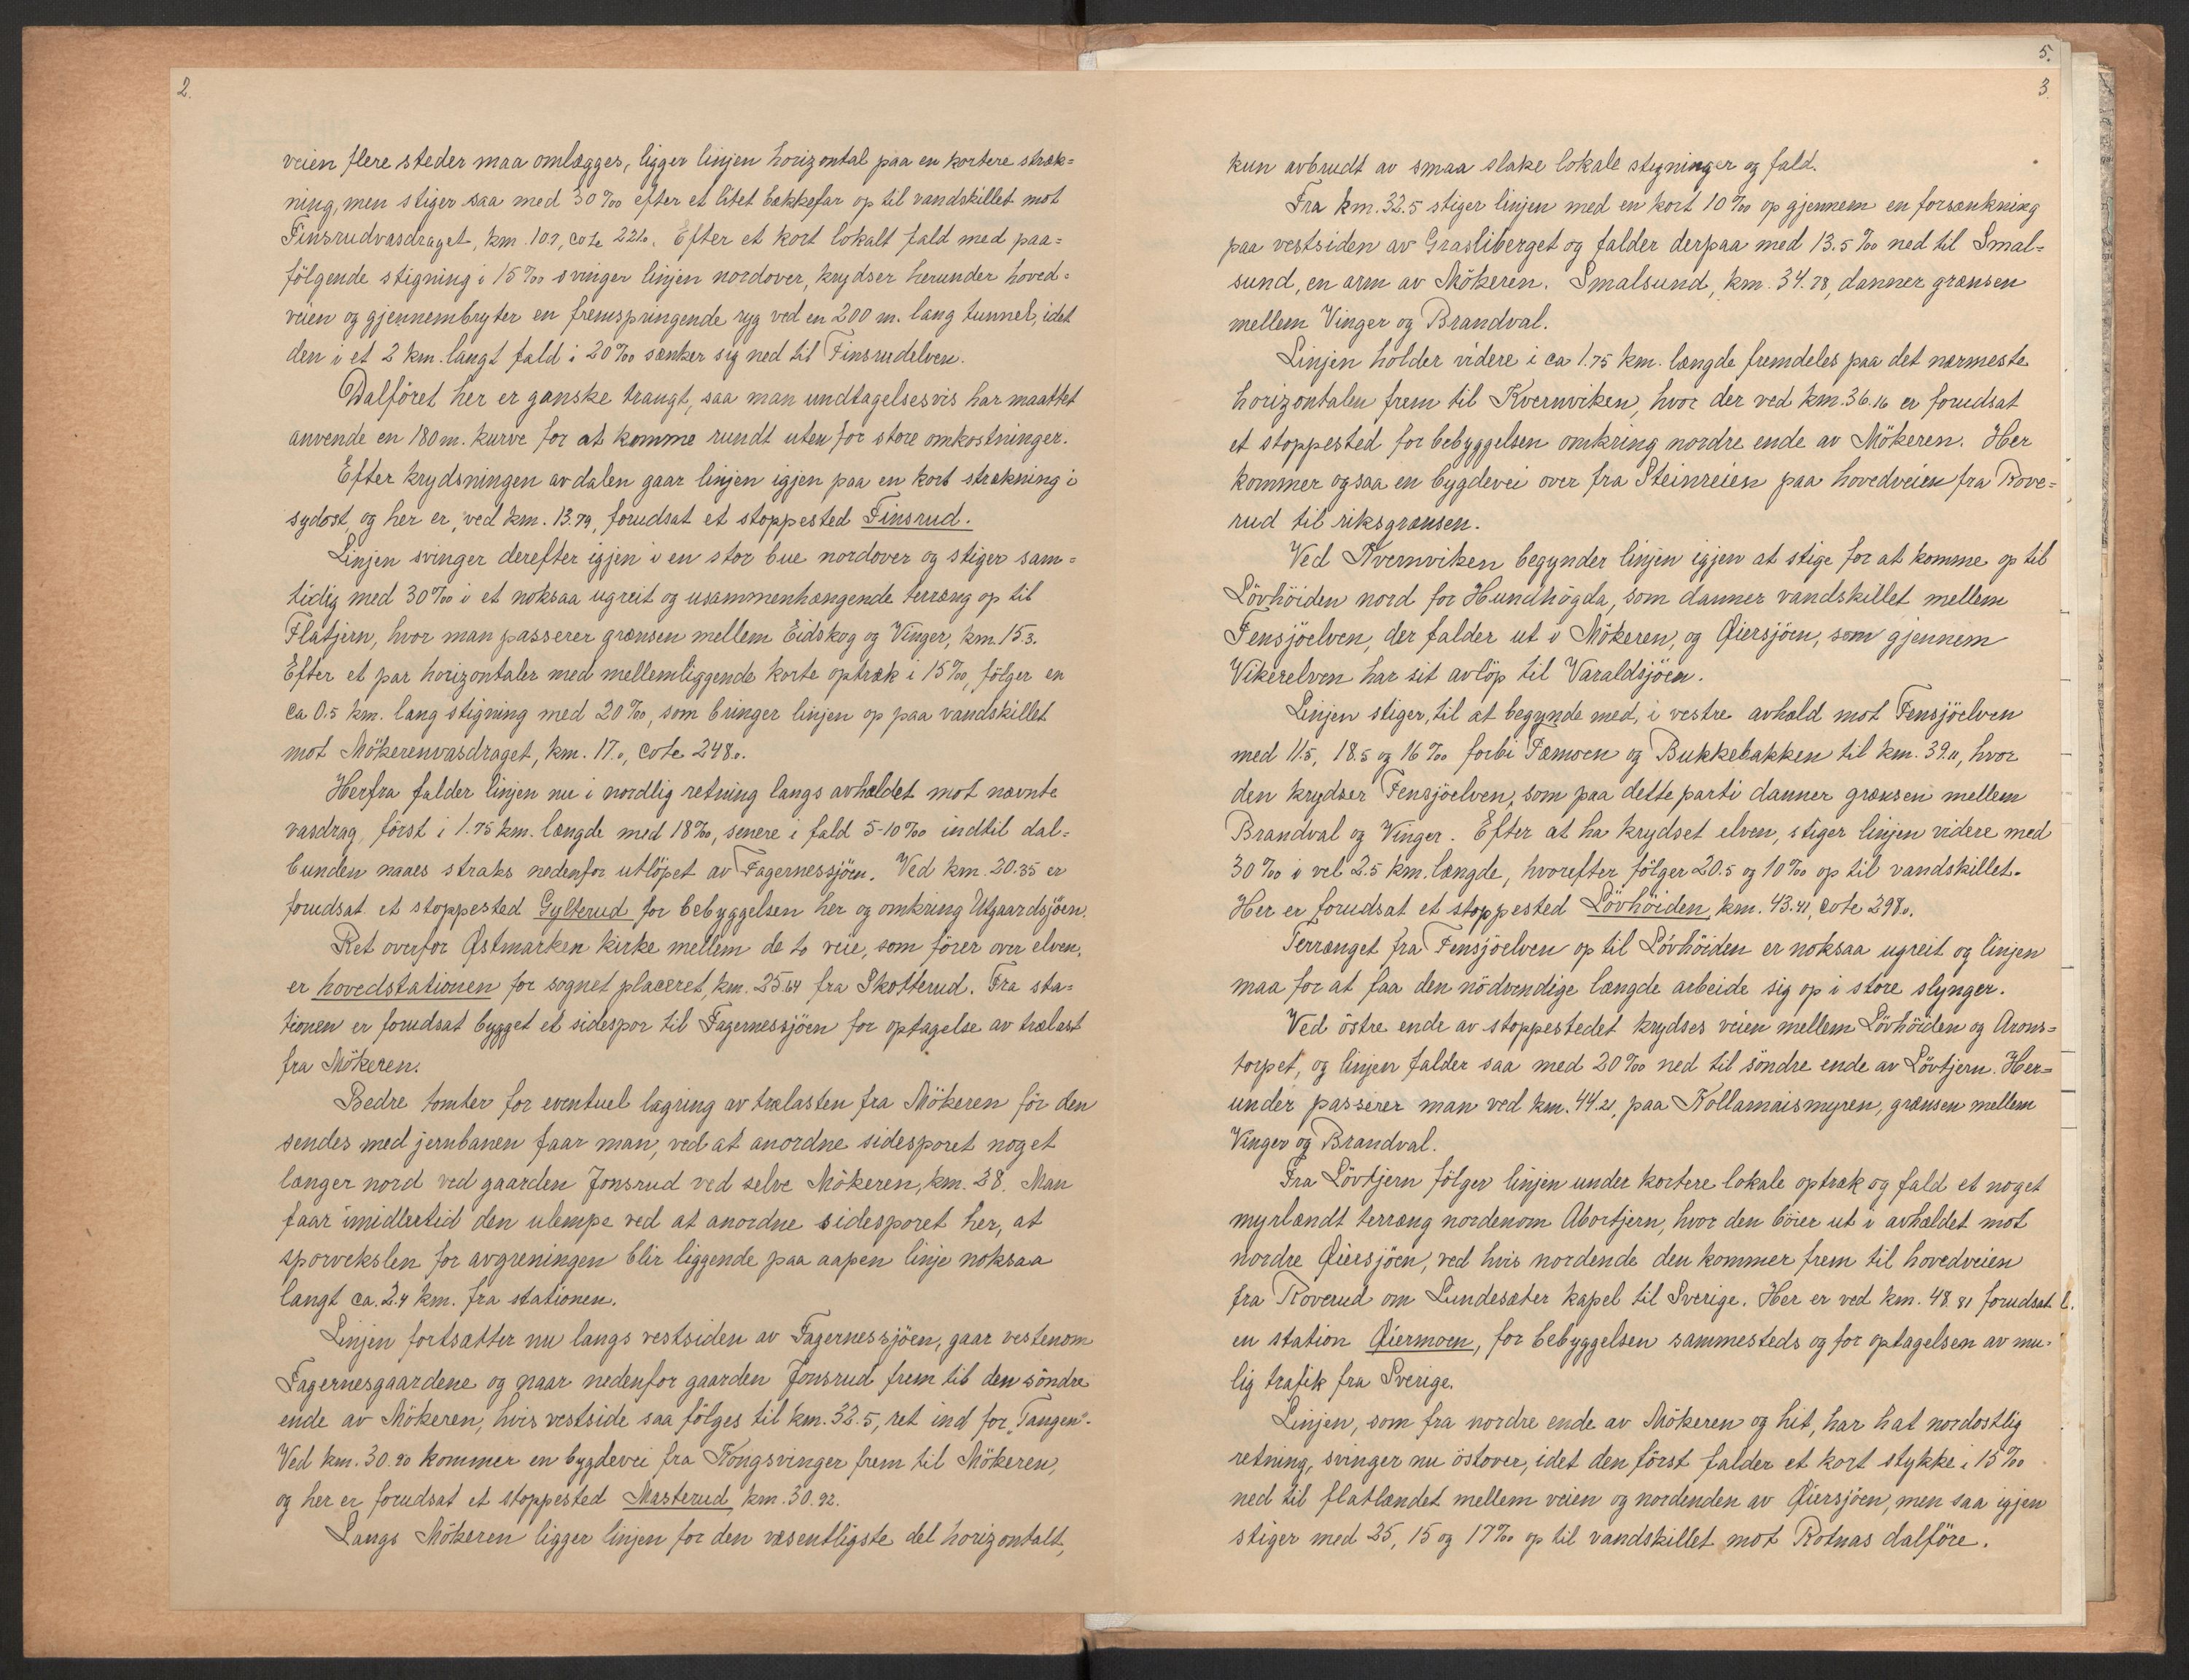 2.
veien flere steder maa omlægges, ligger linjen horizontal paa en kortere stræk=
ning, men stiger saa med 30‰ efter et litet bækkefar op til vandskillet mot
Finsrudvasdraget, km. 10.7, cote 221.0. Efter et kort lokalt fald med paa=
følgende stigning i 15‰ svinger linjen nordover, krydser herunder hoved=
veien og gjennembryter en fremspringende ryg ved en 200 m. lang tunnel, idet
den i et 2 km. langt fald i 20‰ sænker sig ned til Finsrudelven.
Dalføret her er ganske trangt, saa man undtagelsesvis har maattet
anvende en 180 m. kurve for at komme rundt uten for store omkostninger.
Efter krydsningen av dalen gaar linjen igjen paa en kort strækning i
sydøst, og her er, ved km. 13.79, forudsat et stoppested Finsrud.
Linjen svinger derefter igjen i en stor bue nordover og stiger sam=
tidig med 30‰ i et noksaa ugreit og usammenhængende terræng op til
Flatjern, hvor man passerer grænsen mellem Eidskog og Vinger, km. 15.3.
Efter et par horizontaler med mellemliggende korte optræk i 15‰, følger en
ca 0.5 km. lang stigning med 20‰, som bringer linjen op paa vandskillet
mot Mökerenvasdraget, km. 17.0, cote 248.0.
Herfra falder linjen nu i nordlig retning langs avhældet mot nævnte
vasdrag, först i 1.75 km. længde med 18‰, senere i fald 5-10‰ indtil dal=
bunden naaes straks nedenfor utlöpet av Fagernessjöen. Ved km. 20.35 er
forudsat et stoppested Gylterud for bebyggelsen her og omkring Utgaardsjöen.
Ret overfor Østmarken kirke mellem de to veie, som förer over elven,
er hovedstationen for sognet placeret, km. 25.64 fra Skotterud. Fra sta=
tionen er forudsat bygget et sidespor til Fagernessjöen for optagelse av trælast
fra Mökeren.
Bedre tomter for eventuel lagring av trælasten fra Mökeren för den
sendes med jernbanen faar man, ved at anordne sidesporet noget
længer nord ved gaarden Jonsrud ved selve Mökeren, km. 28. Man
faar imidlertid den ulempe ved at anordne sidesporet her, at
sporvekslen for avgreningen blir liggende paa aapen linje noksaa
langt ca. 2.4 km. fra stationen.
Linjen fortsætter nu langs vestsiden av Fagernessjöen, gaar vestenom
Fagernesgaardene og naar nedenfor gaarden Jonsrud frem til den söndre
ende av Mökeren, hvis vestside saa fölges til km. 32.5, ret ind for „Tangen".
Ved km. 30.90 kommer en bygdevei fra Kongsvinger frem til Mökeren,
og her er forudsat et stoppested Masterud, km. 30.92.
Langs Mökeren ligger linjen for den væsentligste del horizontalt,
5.
3.
kun avbrudt av smaa slake lokale stigninger og fald.
Fra km. 32.5 stiger linjen med en kort 10‰ op gjennem en forsænkning
paa vestsiden av Grasliberget og falder derpaa med 13.5‰ ned til Smal=
sund, en arm av Mökeren. Smalsund, km. 34.78, danner grænsen
mellem Vinger og Brandval.
Linjen holder videre i ca 1.75 km. længde fremdeles paa det nærmeste
horizontalen frem til Kvernviken, hvor der ved km. 36.16 er forudsat
et stoppested for bebyggelsen omkring nordre ende av Mökeren. Her
kommer ogsaa en bygdevei over fra Steinreien paa hovedveien fra Rove=
rud til riksgrænsen.
Ved Kvernviken begynder linjen igjen at stige for at komme op til
Lövhöiden nord for Hundhögda, som danner vandskillet mellem
Fensjöelven, der falder ut i Mökeren, og Øiersjöen, som gjennem
Vikerelven har sit avlöp til Varaldsjöen.
Linjen stiger, til at begynde med, i vestre avhæld mot Fensjöelven
med 11.5, 18.5 og 16‰ forbi Tæmoen og Bukkebakken til km. 39.11, hvor
den krydser Fensjöelven, som paa dette parti danner grænsen mellem
Brandval og Vinger. Efter at ha krydset elven, stiger linjen videre med
30‰ i vel 2.5 km. længde, hvorefter fölger 20.5 og 10‰ op til vandskillet.
Her er forudsat et stoppested Lövhöiden, km. 43.41, cote 298.0.
Terrænget fra Fensjöelven op til Lövhöiden er noksaa ugreit og linjen
maa for at faa den nödvendige længde arbeide sig op i store slynger.
Ved östre ende av stoppestedet krydses veien mellem Lövhöiden og Arons=
torpet, og linjen falder saa med 20‰ ned til söndre ende av Lövtjern. Her=
under passerer man ved km. 44.21, paa Kollamaismyren, grænsen mellem
Vinger og Brandval.
Fra Lövtjern fölger linjen under kortere lokale optræk og fald et noget
myrlændt terræng nordenom Abortjern, hvor den böier ut i avhældet mot
nordre Øiersjöen, ved hvis nordende den kommer frem til hovedveien
fra Roverud om Lundesæter kapel til Sverige. Her er ved km. 48.81 forudsat
en station Øiermoen, for bebyggelsen sammesteds og for optagelsen av mu=
lig trafik fra Sverige.
Linjen, som fra nordre ende av Mökeren og hit, har hat nordostlig
retning, svinger nu östover, idet den först falder et kort stykke i 15‰
ned til flatlændet mellem veien og nordenden av Øiersjöen, men saa igjen
stiger med 25, 15 og 17‰ op til vandskillet mot Rotnas dalföre.